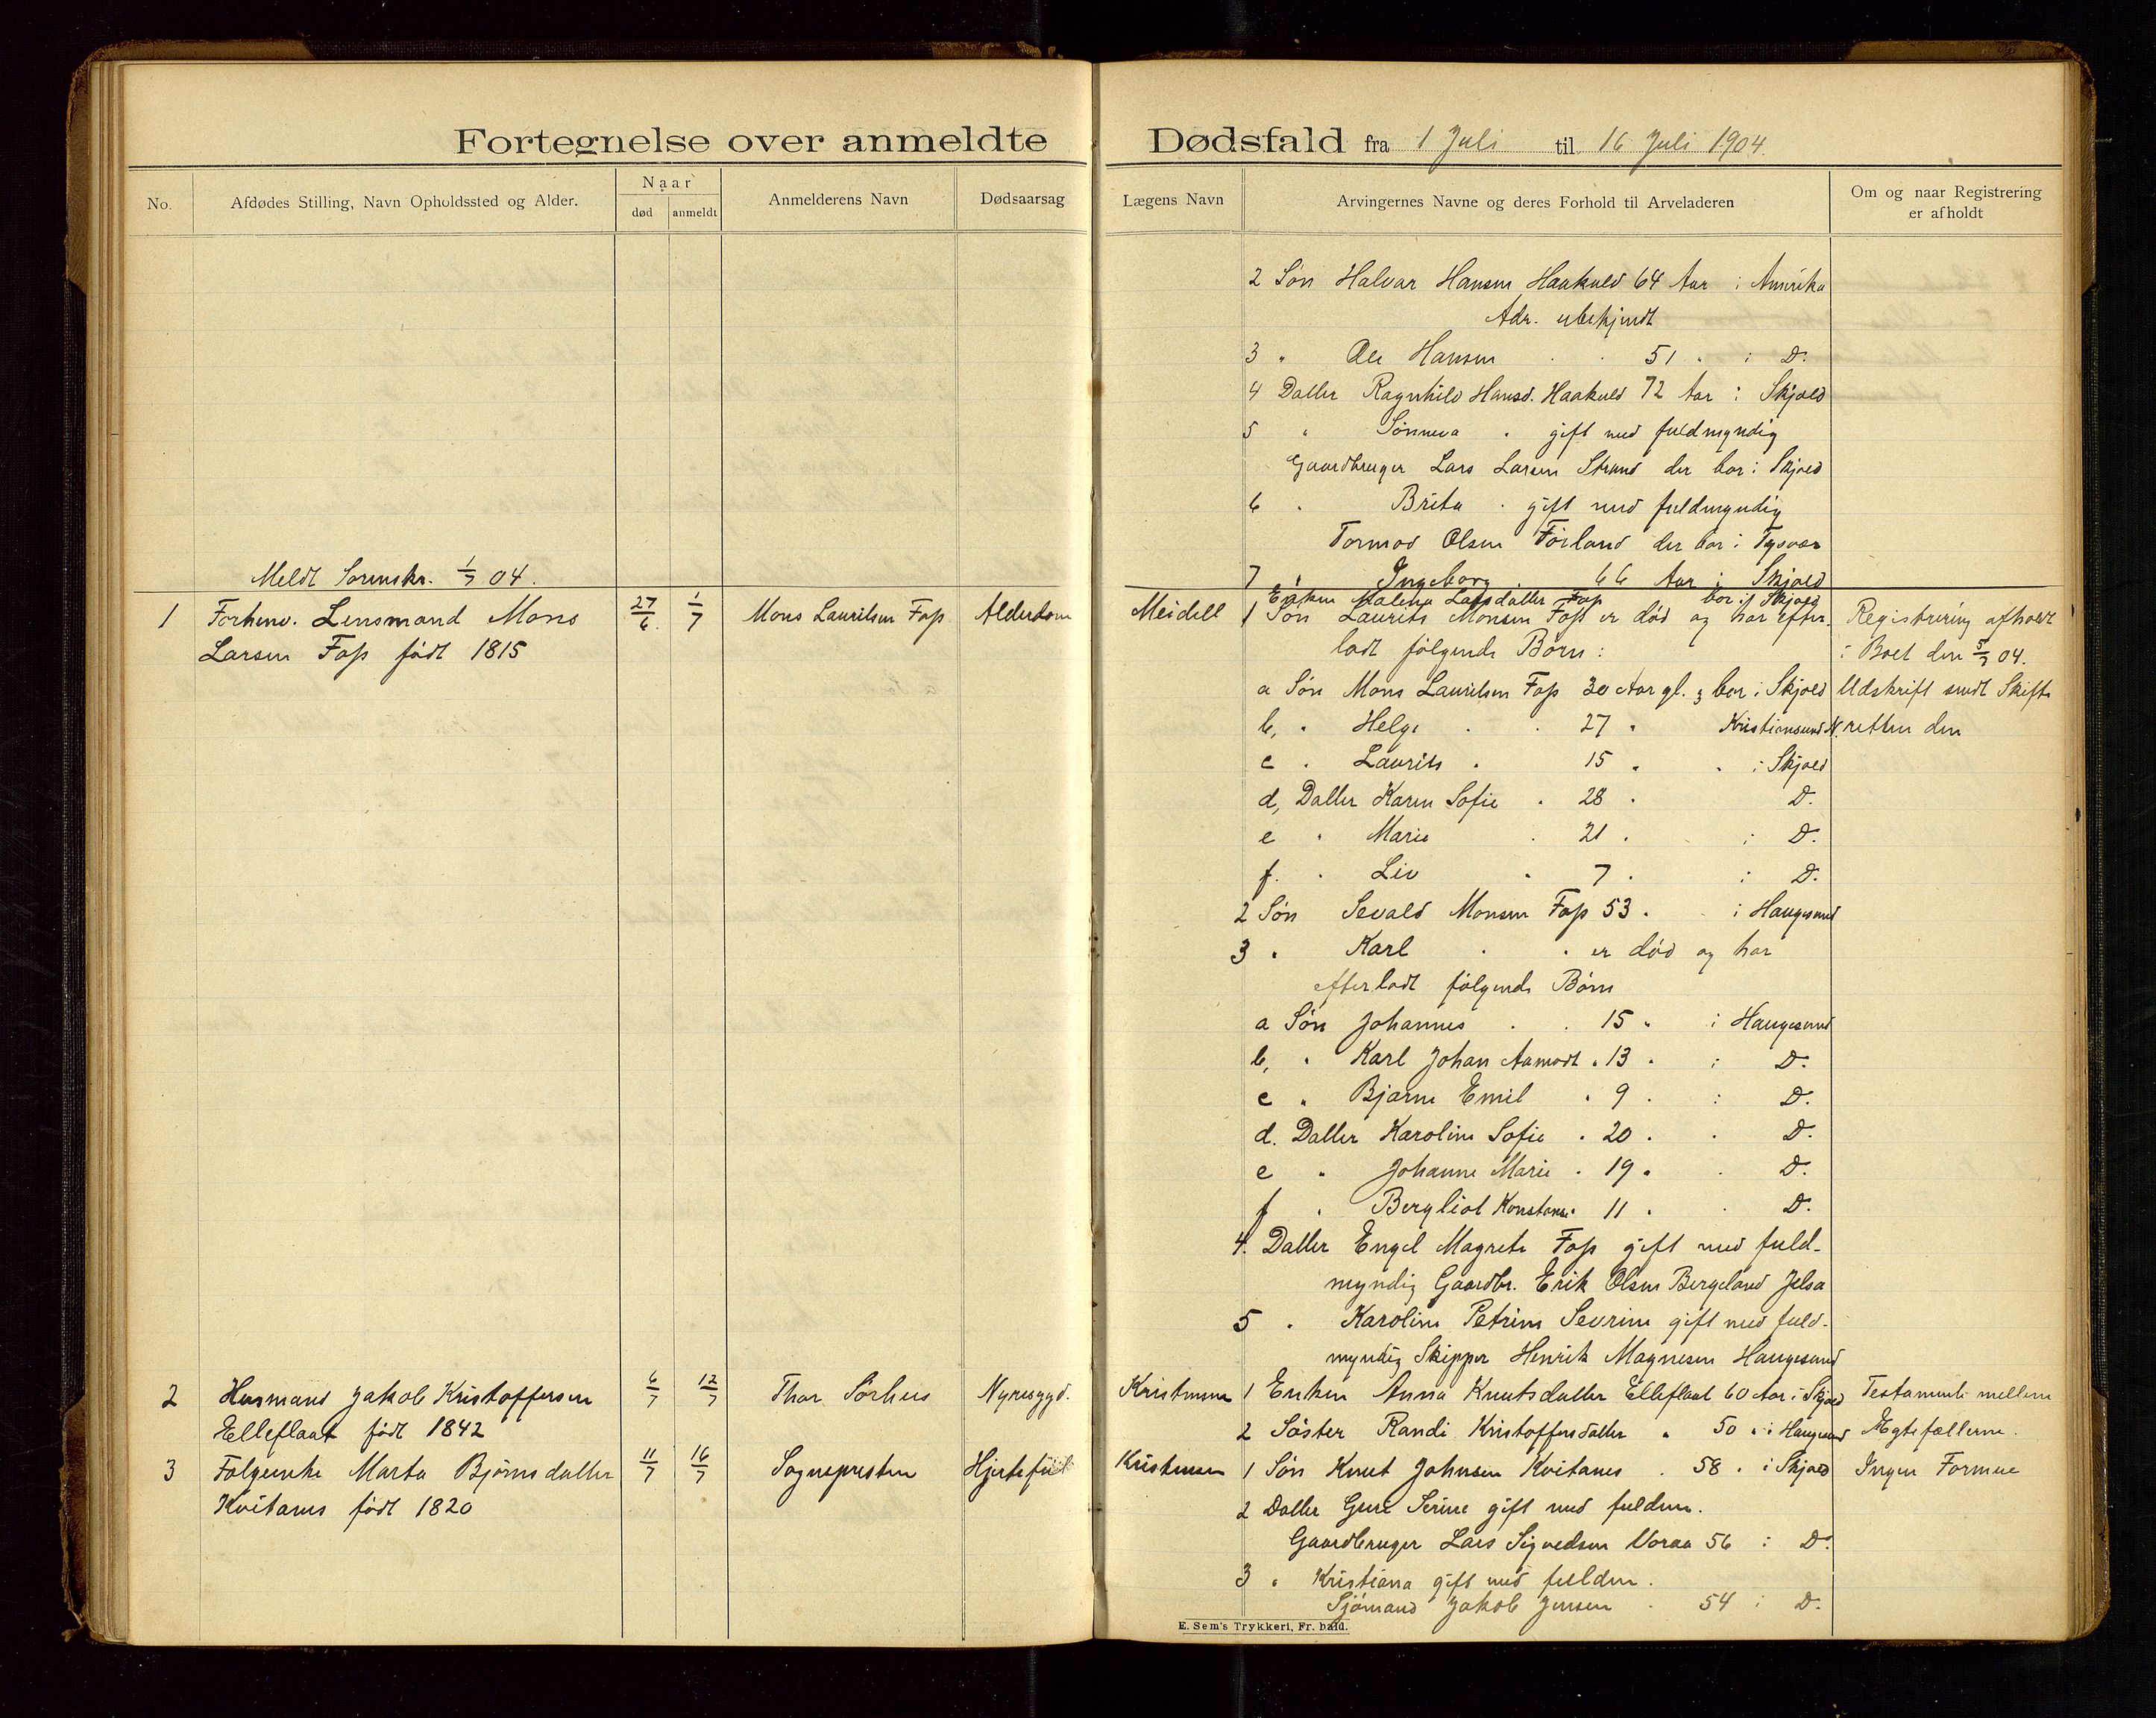 Fortegnelse over anmeldte Dødsfald fra 1 Juli til 16 Juli 1904.
No.
Afdødes Stilling, Navn Opholdssted og Alder.
Naar
død anmeldt
Anmelderens Navn
Dødsaarsag
Lægens Navn
Arvingernes Navne og deres Forhold til Arveladeren
Om og naar Registrering
er afholdt
2 Søn Halvar Hansen Haakuld 64 Aar i Amerika
Adr. ubekjendt
3 " Ole Hansen . . 51 " i D.
4 Datter Ragnhild Hansd. Haakuld 72 Aar i Skjold
5 " Sønneva " gift med fuldmyndig
Gaardbruger Lars Larsen Strand der bor i Skjold
6 " Brita " gift med fuldmyndig
Tormod Olsen Førland der bor i Tysvær
7 " Ingeborg . 66 Aar i Skjold
Meldt Sorenskr. 1/7 04.
1 Forhenv. Lensmand Mons
Larsen Foss født 1815
27/6 1/7 Mons Lauritsen Foss Alderdom
Meidell
Enken Malena Larsdatter Foss bor i Skjold
1 Søn Laurits Monsen Foss er død og har efter-
ladt følgende Børn:
a Søn Mons Lauritsen Foss 30 Aar gl. & bor i Skjold
b, " Helge . . 27 " Kristiansund N.
c " Laurits . 15 " " i Skjold
d, Datter Karen Sofie . 28 " D.
e " Marie . 21 . i D.
f. " Liv " 7 . i D.
2 Søn Sevald Monsen Foss 53 . . i Haugesund
3 " Karl . . er død og har
efterladt følgende Børn
a Søn Johannes . . 15 " i Haugesund
b, " Karl Johan Aamodt . 13 . i D.
c " Bjarne Emil . 9 . i D.
d. Datter Karoline Sofie . 20 . . D.
e " Johanne Marie . 19 . . D.
f " Bergliot Konstanse . 11 . . D.
4. Datter Engel Magrete Foss gift med fuld-
myndig Gaardbr. Erik Olsen Bergeland Jelsa
5 " Karoline Petrine Sevrine gift med fuld-
myndig Skipper Henrik Magnesen Haugesund
Registrering afholdt
i Boet den 5/7 04.
Udskrift sendt Skifte
retten den
2 Husmand Jakob Kristoffersen
Elleflaat født 1842
6/7 12/7 Thor Sørhus Nyresygd.
Kristensen
1 Enken Anna Knutsdatter Elleflaat 60 Aar i Skjold
2 Søster Randi Kristoffersdatter " 50 " i Haugesund
Testamente mellem
Ægtefællerne.
3 Følgeenke Marta Bjørnsdatter
Kvitanes født 1820
11/7 16/7 Sognepresten Hjertefeil
Kristensen
1 Søn Knut Johnsen Kvitanes . 58 . i Skjold
2 Datter Guri Serine gift med fuldm.
Gaardbruger Lars Sigvedsen Voraa 56 i D.
3 " Kristiana gift med fuldm.
Sjømand Jakob Jensen . 54 i D.
Ingen Formue
E. Sem's Trykkeri, Fr. hald.